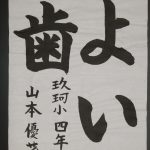 よい
歯
玖珂小四年
山本優